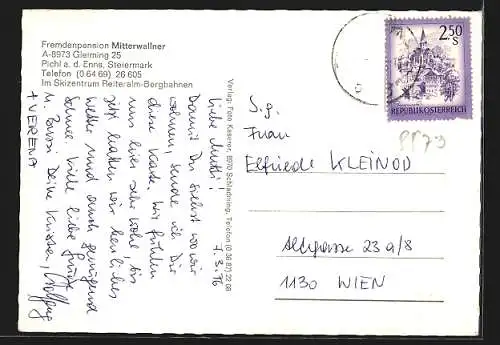 Fremdenpension Mitterwallner
A-8973 Gleiming 25
Pichl a. d. Enns, Steiermark
Telefon (0 64 69) 26 605
Im Skizentrum Reiteralm-Bergbahnen
7.3.76
Liebe Mutti!
Damit Du siehst wo wir
wohnen, sende ich Dir
diese Karte. Wir fühlen
uns hier sehr wohl, bis
jetzt hatten wir herrliches
Wetter und auch genügend
Schnee. Viele liebe Grüße
u. Bussi Deine Wolfgang
+ VERENA
Verlag: Foto Kaserer, 8970 Schladming, Telefon (0 36 87) 22 68
2.50
S
REPUBLIK ÖSTERREICH
8879
Sg.
Frau
Elfriede KLEINOD
Aldgasse 23a/8
1130 WIEN